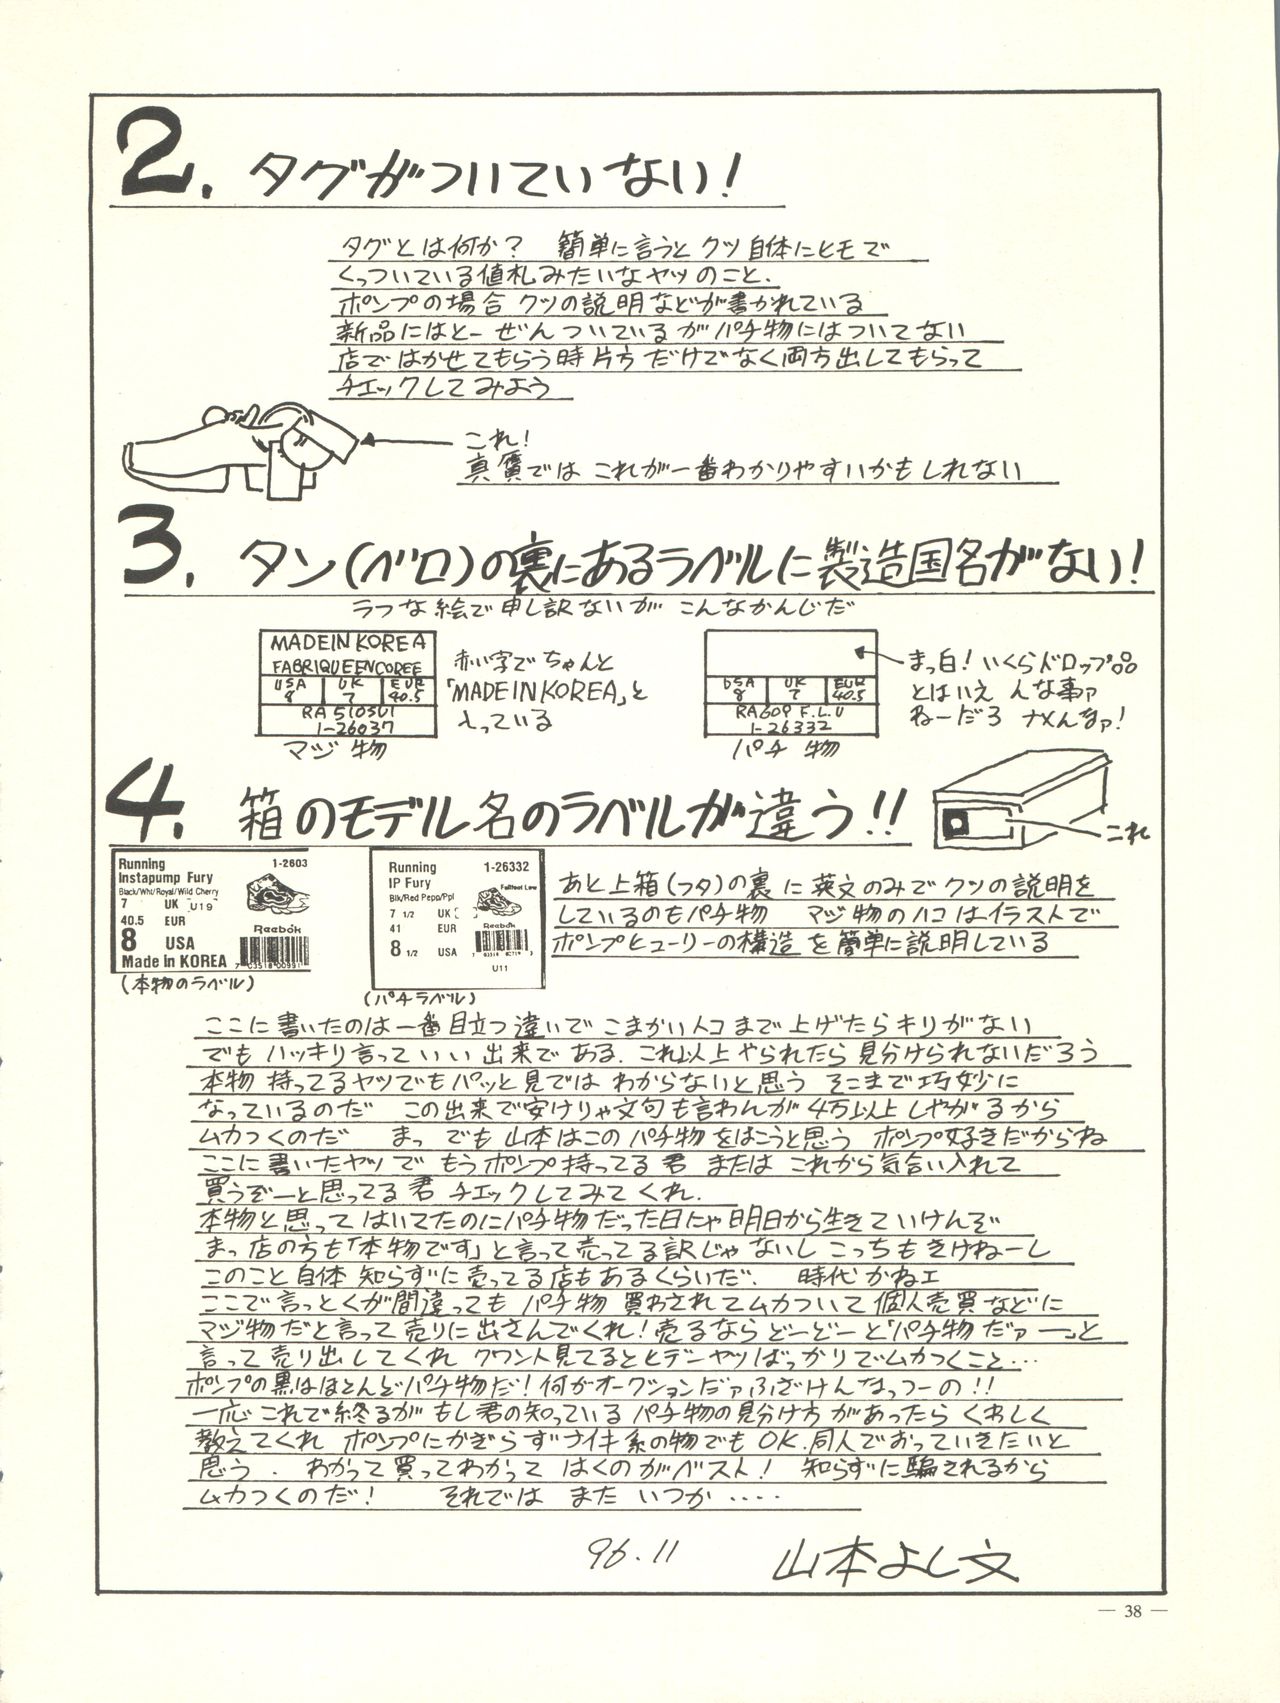 2. タグがついていない!
タグとは何か? 簡単に言うとクツ自体にヒモで
くっついている値札みたいなヤツのこと.
ポンプの場合クツの説明などが書かれている
新品にはとーぜんついているがパチ物にはついてない
店ではかせてもらう時片方だけでなく両方出してもらって
チェックしてみよう
これ!
真贋ではこれが一番わかりやすいかもしれない
3. タン(ベロ)の裏にあるラベルに製造国名がない!
ラフな絵で申し訳ないがこんなかんじだ
MADE IN KOREA
FABRIQUE EN COREE
USA 8 UK 7 EUR 40.5
RA 510SU1
1-26037
マジ物
赤い字でちゃんと
「MADE IN KOREA」と
入っている
USA 8 UK 7 EUR 40.5
RA609 F.L.U
1-26332
パチ物
まっ白! いくらドロップ品
とはいえ んな事ァ
ねーだろ ナメんなァ!
4. 箱のモデル名のラベルが違う!!
これ
Running 1-2603
Instapump Fury
Black/Wht/Royal/Wild Cherry
7 UK U19
40.5 EUR
8 USA
Reebok
Made in KOREA
7 03518 00991
(本物のラベル)
Running 1-26332
IP Fury
Blk/Red Pepp/Ppl
7 1/2 UK
41 EUR
8 1/2 USA
Reebok
U11
(パチラベル)
あと上箱(フタ)の裏に英文のみでクツの説明を
しているのもパチ物 マジ物のハコはイラストで
ポンプヒューリーの構造を簡単に説明している
ここに書いたのは一番目立つ違いでこまかいトコまで上げたらキリがない
でもハッキリ言っていい出来である. これ以上やられたら見分けられないだろう
本物持ってるヤツでもパッと見ではわからないと思う そこまで巧妙に
なっているのだ この出来で安けりゃ文句も言わんが4万以上しやがるから
ムカつくのだ まっ でも山本はこのパチ物をはこうと思う ポンプ好きだからね
ここに書いたヤツでもうポンプ持ってる君 またはこれから気合い入れて
買うぞーと思ってる君 チェックしてみてくれ.
本物と思ってはいてたのにパチ物だった日にゃ明日から生きていけんぞ
まっ店の方も「本物です」と言って売ってる訳じゃないし こっちもきけねーし
このこと自体知らずに売ってる店もあるくらいだ. 時代かねェ
ここで言っとくが間違ってもパチ物買わされてムカついて個人売買などに
マジ物だと言って売りに出さんでくれ! 売るならどーどーと「パチ物だァー」と
言って売り出してくれ クワント見てるとヒデーヤツばっかりでムカつくこと…
ポンプの黒はほとんどパチ物だ! 何がオークションだァふざけんなっつーの!!
一応これで終るがもし君の知っているパチ物の見分け方があったらくわしく
教えてくれ ポンプにかぎらずナイキ系の物でもOK. 同人でおっていきたいと
思う. わかって買ってわかってはくのがベスト! 知らずに騙されるから
ムカつくのだ! それではまたいつか‥‥
96.11 山本よし文
— 38 —